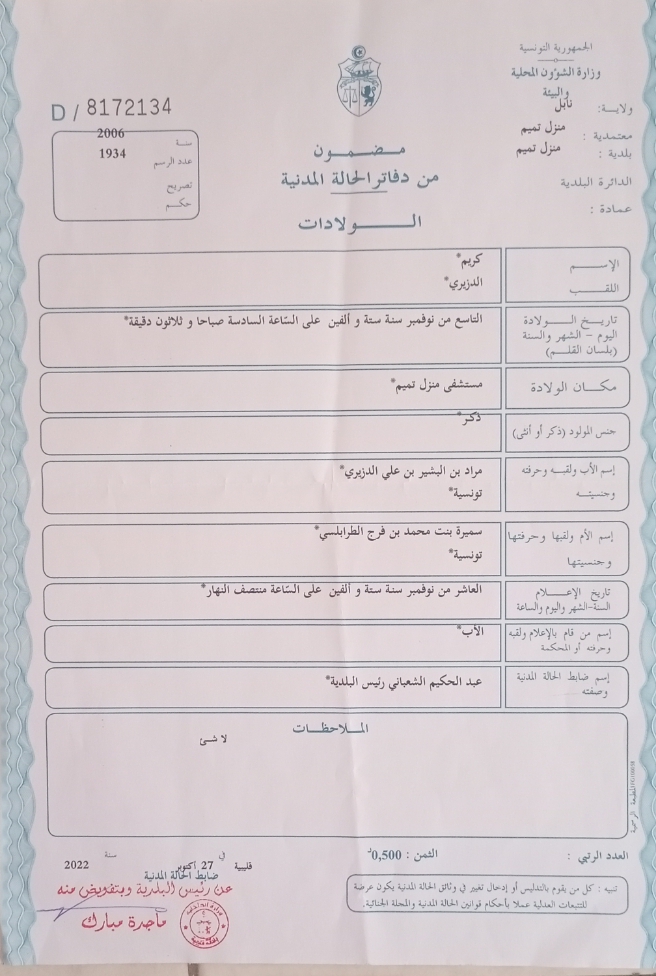 الجمهورية التونسية
وزارة الشؤون المحلية
والبيئة
ولاية: نابل
معتمدية : منزل تميم
بلدية : منزل تميم
الدائرة البلدية
عمادة :
D / 8172134
سنة 2006
عدد الرسم 1934
تصريح
حكم
مضمون
من دفاتر الحالة المدنية
الولادات
الإسم كريم*
اللقب الدزيري*
تاريخ الولادة
اليوم - الشهر والسنة
(بلسان القلم)
التاسع من نوفمبر سنة ستة و ألفين على الساعة السادسة صباحا و ثلاثون دقيقة*
مكان الولادة مستشفى منزل تميم*
جنس المولود (ذكر أو أنثى) ذكر*
إسم الأب ولقبه وحرفته مراد بن البشير بن علي الدزيري*
وجنسيته تونسية*
إسم الأم ولقبها وحرفتها سميرة بنت محمد بن فرج الطرابلسي*
وجنسيتها تونسية*
تاريخ الإعلام العاشر من نوفمبر سنة ستة و ألفين على الساعة منتصف النهار*
السنة-الشهر واليوم والساعة
إسم من قام بالإعلام ولقبه الأب*
وحرفته أو المحكمة
إسم ضابط الحالة المدنية عبد الحكيم الشعباني رئيس البلدية*
وصفته
الملاحظات
لا شئ
العدد الرتبي :
الثمن : 0,500د
قليبية في 27 أكتوبر سنة 2022
ضابط الحالة المدنية
عن رئيس البلدية وبتفويض منه
ماجدة مبارك
تنبيه : كل من يقوم بالتدليس أو إدخال تغيير في وثائق الحالة المدنية يكون عرضة
للتتبعات العدلية عملا بأحكام قوانين الحالة المدنية والمجلة الجنائية.